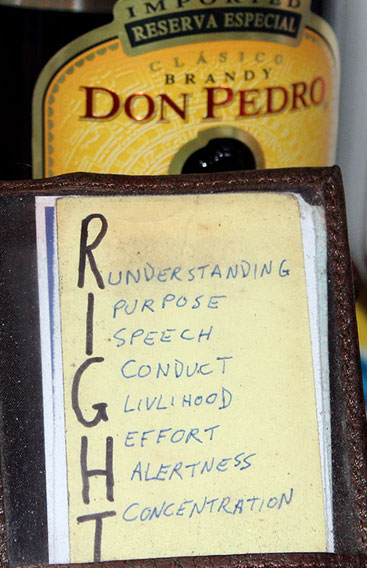 IMPORTED
RESERVA ESPECIAL
CLÁSICO
BRANDY
DON PEDRO
RIGHT
UNDERSTANDING
PURPOSE
SPEECH
CONDUCT
LIVLIHOOD
EFFORT
ALERTNESS
CONCENTRATION